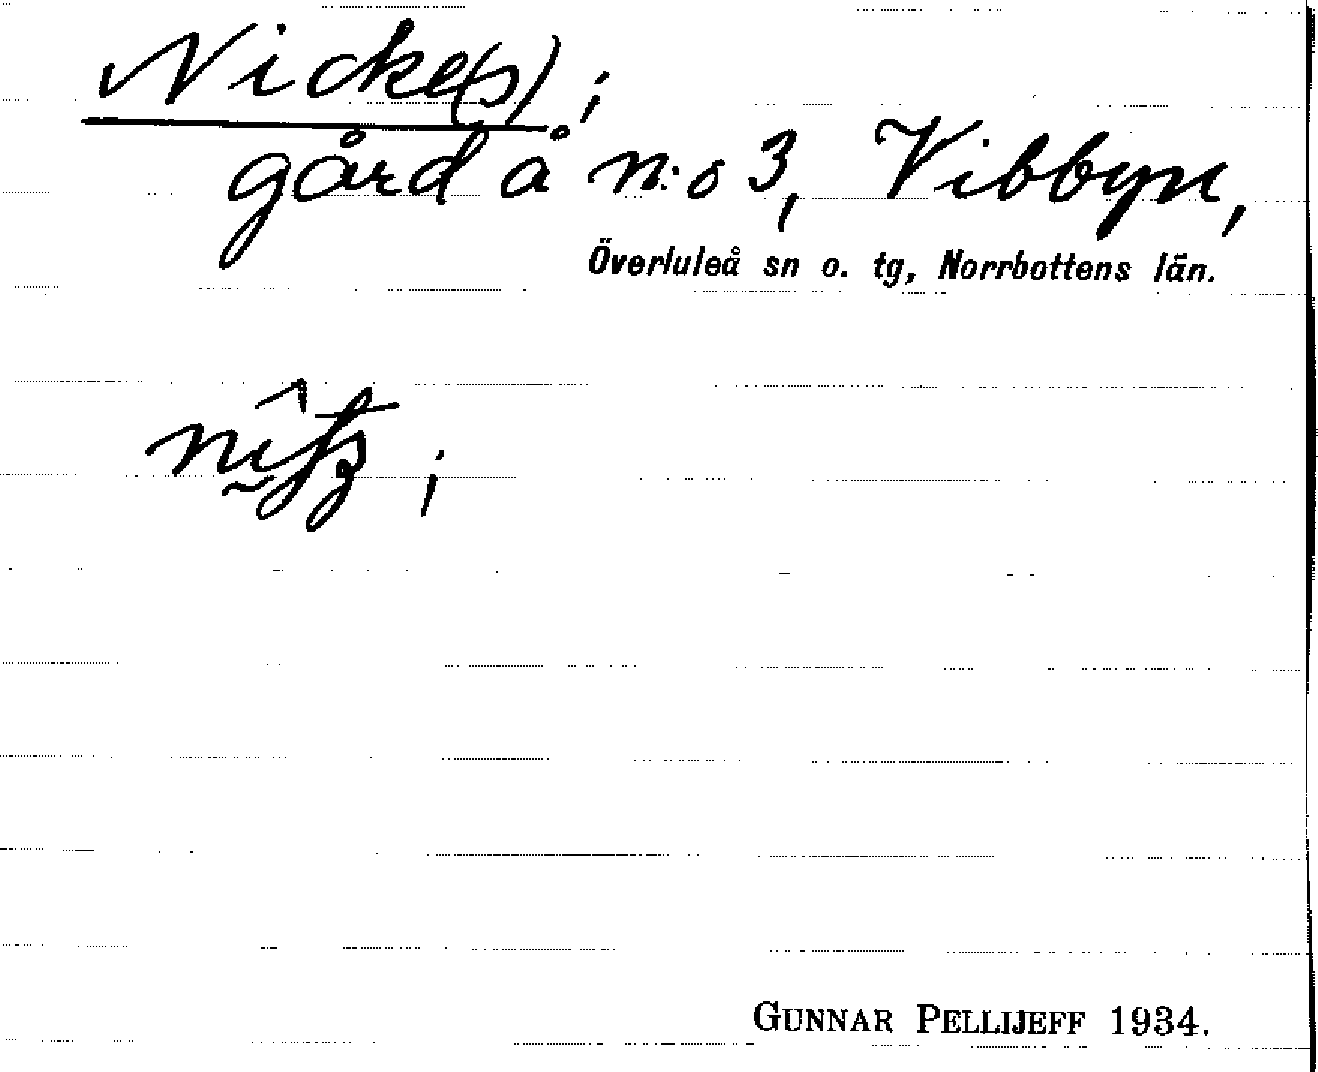 Nicke(s);
gård å n:o 3, Vibbyn,
Överluleå sn o. tg, Norrbottens län.
GUNNAR PELLIJEFF 1934.